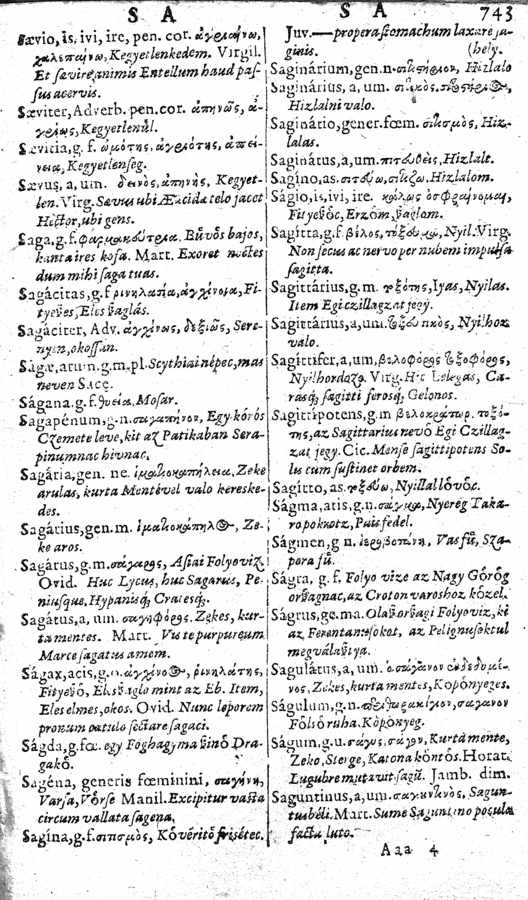 S A
Sævio, is, ivi, ire, pen. cor. ἀγριαίνω,
χαλεπαίνω, Kegyetlenkedem. Virgil.
Et sævire animis Entellum haud pas-
sus acervis.
Sæviter, Adverb. pen. cor. ἀπηνῶς, ἀ-
γρίως, Kegyetlenűl.
Sævicia, g. f. ὠμότης, ἀγριότης, ἀπεί-
νεια, Kegyetlenseg.
Sævus, a, um. δεινὸς, ἀπηνὴς, Kegyet-
len. Virg. Sævus ubi Æacidæ telo jacet
Hector, ubi gens.
Saga, g. f. φαρμακεύτρια. bajos,
kofa. Mart. Exoret noctes
dum mihi saga tuas.
Sagácitas, g. f ῥινηλασία, ἀγχίνοια, Fi-
tyeves, Eles
Sagáciter, Adv. ἀγχίνως, δεξιῶς, Sere-
nyen, okossan.
Ságæ, arum, g. m. pl. Scythiai népec, mas
neven Sacæ.
Ságana. g. f. Mosar.
Sagapénum, g. n. σαγαπηνον, Egy kóros
Czemete leve, kit az Patikaban Sera-
pinumnac hivnac.
Sagária, gen. ne. ἱματιοκαπηλεια, Zeke
arulas, kurta Mentével valo kereske-
des.
Sagárius, gen. m. ἱματιοκάπηλος, Ze-
ke aros.
Ságarus, g. m. σάγαρος, Asiai Folyoviz.
Ovid. Huc Lycus, huc Sagarus, Pe-
niusque, Hypanisq; Cratesq;.
Sagátus, a, um. σαγηφόρος. Zekes, kur-
ta mentes. Mart. Vis te purpureum
Marce sagatus amem.
Ságax, acis, g. o. ἀγχίνοος, ῥινηλάτης,
mint az Eb. Item,
Eles elmes, okos. Ovid. Nunc leporem
pronum catulo sectare sagaci.
Ságda, g. fœ. egy Dra-
gakő.
Sagéna, generis fœminini, σαγήνη,
Varsa, Manil. Excipitur vasta
circum vallata sagena.
Sagína, g. f. σιτισμὸς, Kővéritő
S A
743
Juv.—propera stomachum laxare sa-
ginis. (hely.
Saginárium, gen. n. Hizlalo
Saginárius, a, um.
Hizlalni valo.
Saginátio, gener. fœm. σιτισμὸς, Hiz-
lalas.
Saginátus, a, um. σιτευθεὶς. Hizlalt.
Sagíno, as. σιτεύω, σιτίζω. Hizlalom.
Ságio, is, ivi, ire. κάλως ὀσφραίνομαι,
Erzőm,
Sagítta, g. f. βέλος, τόξευμα, Nyil. Virg.
Non secus ac nervo per nubem impulsa
sagitta.
Sagittárius, g. m. τοξότης, Iyas, Nyilas.
Item Egi czillagzat jegy.
Sagittárius, a, um. Nyilhoz
valo.
Sagíttifer, a, um, βελοφόρος τοξοφόρος,
Nyilhordozo. Virg. Hic Lelegas, Ca-
rasq; sagittiferosq; Gelonos.
Sagittipotens, g. m βελοκράτωρ. τοξό-
της, az Sagittarius nevő Egi Czillag-
zat jegy. Cic. Mense sagittipotens So-
lis cum sustinet orbem.
Sagítto, as. τοξεύω, Nyillal lővőc.
Ságma, atis, g. n. σάγμα, Nyereg Taka-
ro
Ságmen, g n. ἱεροβοτάνη, Vas fű, Sza-
pora fű.
Ságra, g. f. Folyo vize az Nagy Görög
az Croton varoshoz kőzel.
Ságrus, ge. ma. Olaszorszagi Folyoviz, ki
az Ferentanusokot, az Pelignusoktul
Sagulátus, a, um.
Zekes, kurta mentes, Kőpőnyeges.
Ságulum, g. n.
Fölső ruha. Kőpőnyeg.
Ságum, g. n. Kurta mente,
Zeko, Sterge, Katona kőntős. Horat.
Lugubre mutavit sagū. Jamb. dim.
Saguntinus, a, um. σαγουντῖνος, Sagun-
tusbéli. Mart. Sume Saguntino pocula
facta luto.
Aaa 4